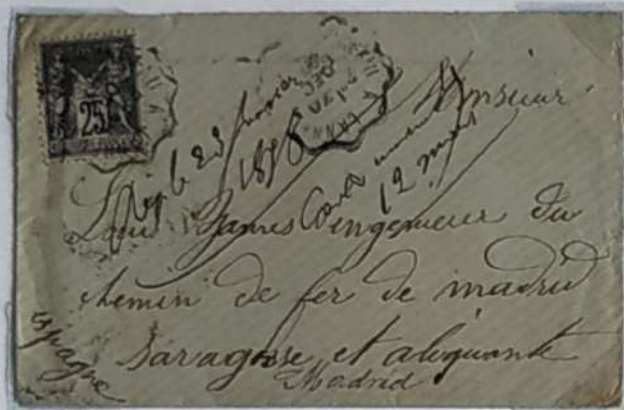 25
Monsieur
Rép le 23 janvier
1898
12 mars
Louis James ingenieur du
chemin de fer de madrid
Saragosse et aliquante
Madrid
espagne